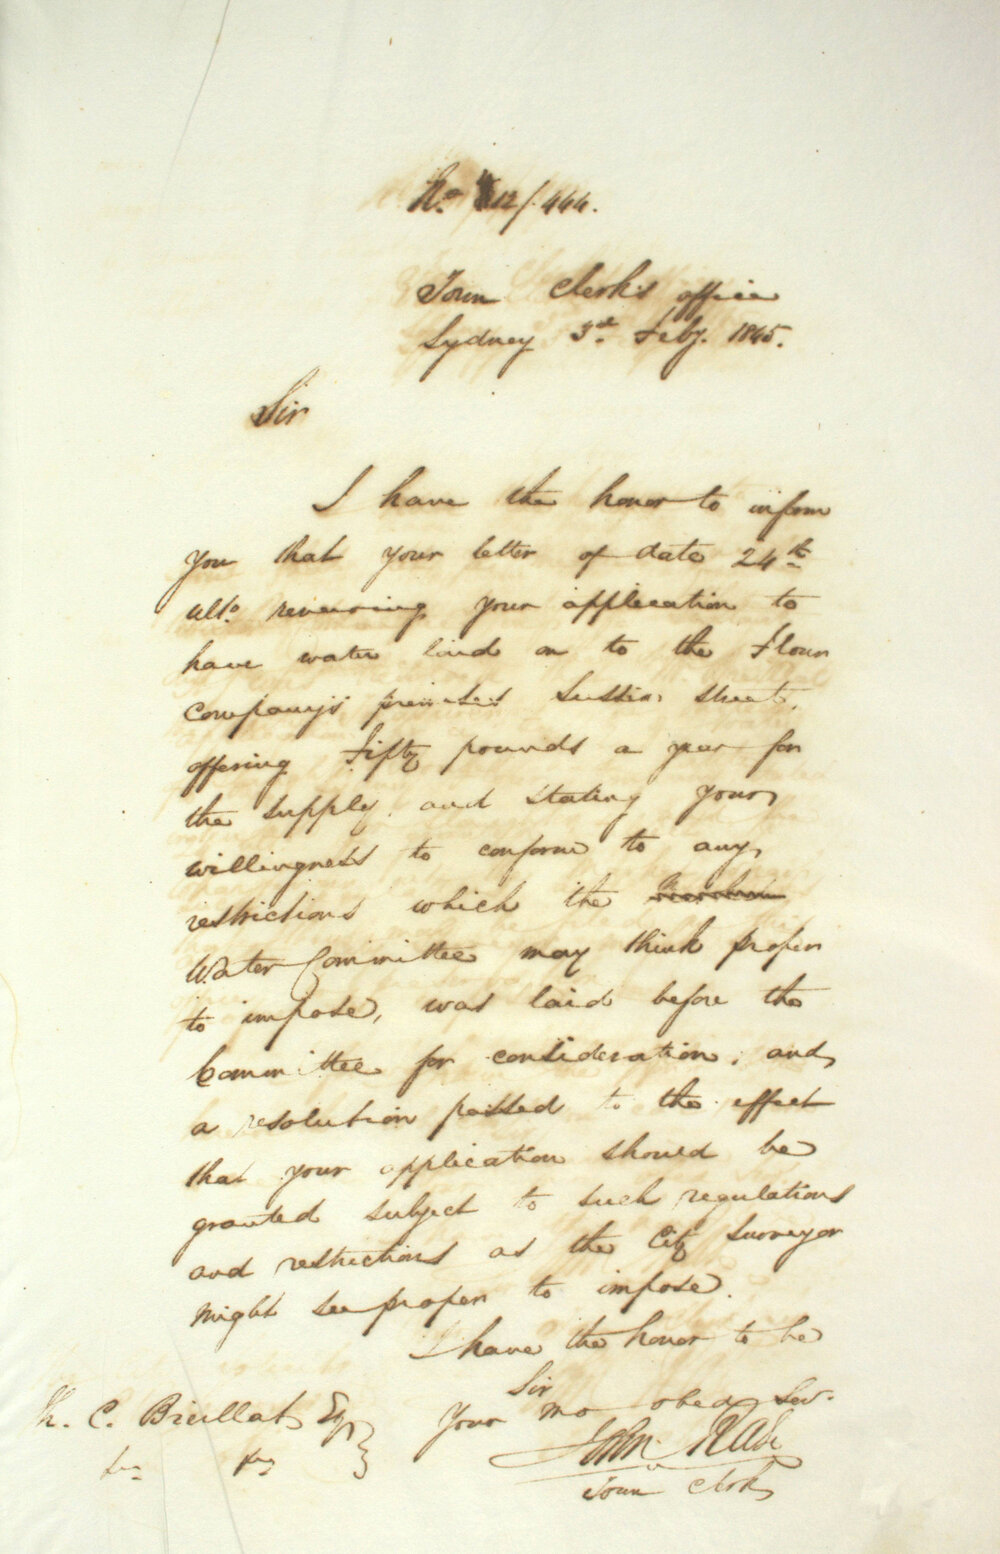 No. 12/. 444.
Town Clerk's office
Sydney 3rd. Feby. 1845.
Sir
I have the honor to inform
you that your letter of date 24th
ulto. renewing your application to
have water laid on to the Flour
Company's premises Sussex street,
offering Fifty pounds a year for
the supply, and stating your
willingness to conform to any
restrictions which the
Water Committee may think proper
to impose, was laid before the
Committee for consideration; and
a resolution passed to the effect
that your application should be
granted subject to such regulations
and restrictions as the City Surveyor
might see proper to impose.
I have the honor to be
Sir
Your mo obed Servt.
John Rae
Town Clerk
C. Brellat Esqr